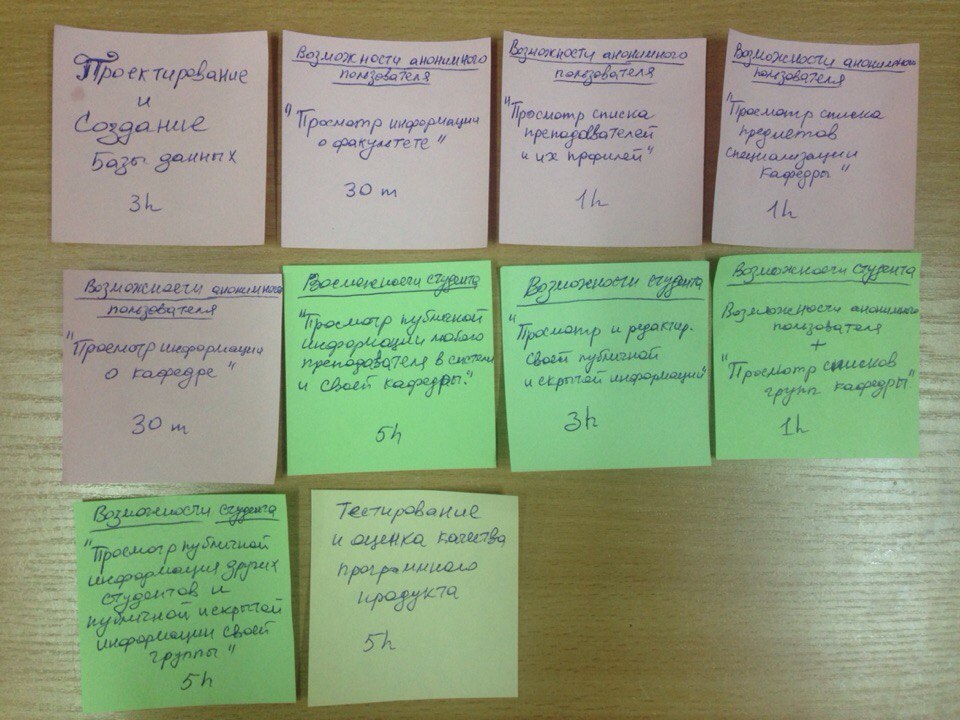 Проектирование
и
Создание
Базы данных
3h
Возможности анонимного
пользователя
"Просмотр информации
о факультете"
30 m
Возможности анонимного
пользователя
"Просмотр списка
преподавателей
и их профилей"
1h
Возможности анонимного
пользователя
"Просмотр списка
предметов
специализации
кафедры"
1h
Возможности анонимного
пользователя
"Просмотр информации
о кафедре"
30 m
Возможности студента
"Просмотр публичной
информации любого
преподавателя в системе
и своей кафедры."
5h
Возможности студента
"Просмотр и редактир.
своей публичной
и скрытой информации"
3h
Возможности студента
Возможности анонимного
пользователя
+
"Просмотр списков
групп кафедры"
1h
Возможности студента
"Просмотр публичной
информации других
студентов и
публичной и скрытой
информации своей
группы"
5h
Тестирование
и оценка качества
программного
продукта
5h